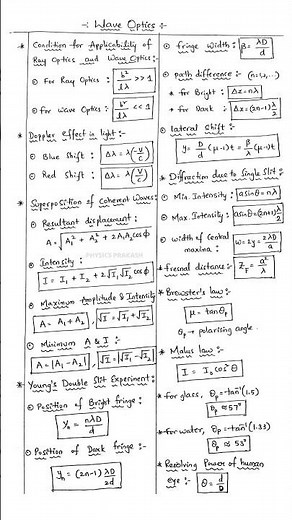 -: Wave Optics :-
* Condition for Applicability of
Ray Optics and Wave Optics:-
⊙ For Ray Optics : b²/lλ >> 1
⊙ For Wave Optics : b²/lλ << 1
* Doppler Effect in light :-
⊙ Blue Shift : Δλ = λ(-v/c)
⊙ Red Shift : Δλ = λ(v/c)
* Superposition of Coherent Waves:
⊙ Resultant displacement :-
A = √A₁² + A₂² + 2A₁A₂cosϕ
PHYSICS PRAKASH
⊙ Intensity :-
I = I₁ + I₂ + 2√I₁√I₂ cosϕ
⊙ Maximum Amplitude & Intensity
A = A₁ + A₂ , √I = √I₁ + √I₂
⊙ Minimum A & I :-
A = |A₁ - A₂| , √I = |√I₁ - √I₂|
* Young's Double Slit Experiment:
⊙ Position of Bright fringe :-
Yₙ = nλD/d
⊙ Position of Dark fringe :-
Yₙ = (2n-1) λD/2d
⊙ fringe Width : β = λD/d
⊙ path difference :- (n=1,2,...)
* for Bright : Δx = nλ
* for Dark : Δx = (2n-1) λ/2
⊙ lateral Shift :-
y = D/d (μ-1)t = β/λ (μ-1)t
* Diffraction due to Single Slit :-
⊙ Min. Intensity : a sinθ = nλ
⊙ Max. Intensity : a sinθ = (2n+1) λ/2
⊙ width of Central
maxima : W = 2y = 2λD/a
* fresnal distance :- Z_F = a²/λ
* Brewster's law :-
μ = tanθₚ
θₚ → polarising angle.
* Malus law :-
I = I₀ cos²θ
* for glass, θₚ = tan⁻¹(1.5)
θₚ ≈ 57°
* for water, θₚ = tan⁻¹(1.33)
θₚ ≈ 53°
* Resolving Power of human
eye :- θ = d/D